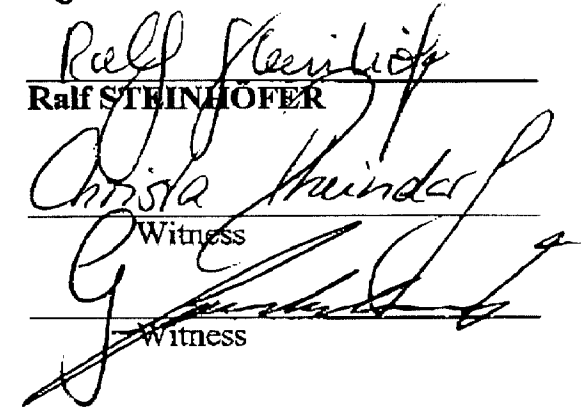 Ralf Steinhöfer
Ralf STEINHÖFER
Christa
Witness
G
Witness